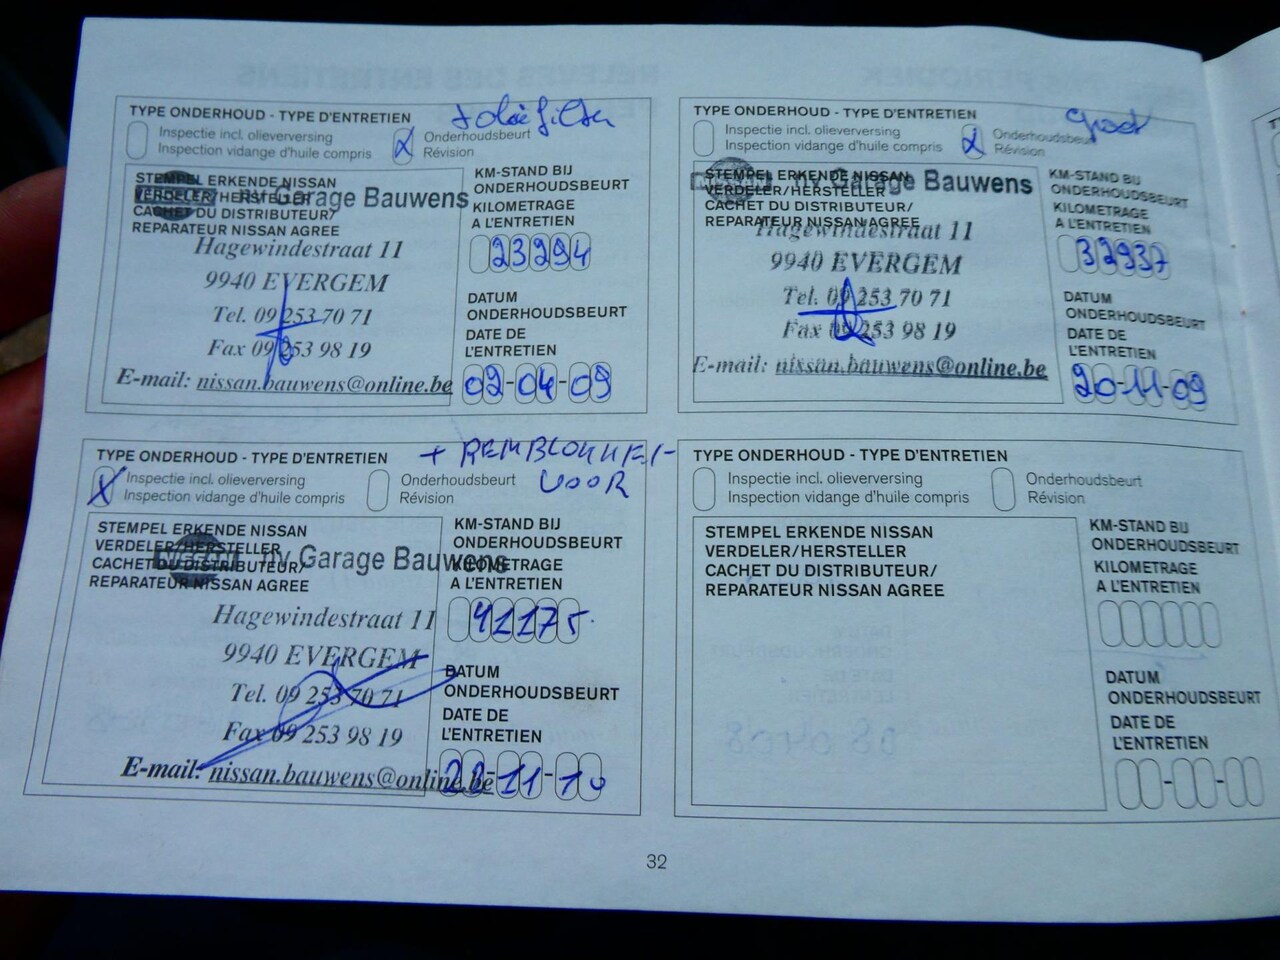 TYPE ONDERHOUD - TYPE D'ENTRETIEN
+ oliefilter
Inspectie incl. olieverversing
Inspection vidange d'huile compris
Onderhoudsbeurt
Révision
STEMPEL ERKENDE NISSAN
VERDELER/HERSTELLER
CACHET DU DISTRIBUTEUR/
REPARATEUR NISSAN AGREE
NISSAN nv Garage Bauwens
Hagewindestraat 11
9940 EVERGEM
Tel. 09 253 70 71
Fax 09 253 98 19
E-mail: nissan.bauwens@online.be
KM-STAND BIJ
ONDERHOUDSBEURT
KILOMETRAGE
A L'ENTRETIEN
23294
DATUM
ONDERHOUDSBEURT
DATE DE
L'ENTRETIEN
02-04-09
TYPE ONDERHOUD - TYPE D'ENTRETIEN
groot
Inspectie incl. olieverversing
Inspection vidange d'huile compris
Onderhoudsbeurt
Révision
STEMPEL ERKENDE NISSAN
VERDELER/HERSTELLER
CACHET DU DISTRIBUTEUR/
REPARATEUR NISSAN AGREE
NISSAN nv Garage Bauwens
Hagewindestraat 11
9940 EVERGEM
Tel. 09 253 70 71
Fax 09 253 98 19
E-mail: nissan.bauwens@online.be
KM-STAND BIJ
ONDERHOUDSBEURT
KILOMETRAGE
A L'ENTRETIEN
32937
DATUM
ONDERHOUDSBEURT
DATE DE
L'ENTRETIEN
20-11-09
TYPE ONDERHOUD - TYPE D'ENTRETIEN
+ REMBLOKKEN
VOOR
Inspectie incl. olieverversing
Inspection vidange d'huile compris
Onderhoudsbeurt
Révision
STEMPEL ERKENDE NISSAN
VERDELER/HERSTELLER
CACHET DU DISTRIBUTEUR/
REPARATEUR NISSAN AGREE
NISSAN nv Garage Bauwens
Hagewindestraat 11
9940 EVERGEM
Tel. 09 253 70 71
Fax 09 253 98 19
E-mail: nissan.bauwens@online.be
KM-STAND BIJ
ONDERHOUDSBEURT
KILOMETRAGE
A L'ENTRETIEN
41175
DATUM
ONDERHOUDSBEURT
DATE DE
L'ENTRETIEN
22-11-10
TYPE ONDERHOUD - TYPE D'ENTRETIEN
Inspectie incl. olieverversing
Inspection vidange d'huile compris
Onderhoudsbeurt
Révision
STEMPEL ERKENDE NISSAN
VERDELER/HERSTELLER
CACHET DU DISTRIBUTEUR/
REPARATEUR NISSAN AGREE
KM-STAND BIJ
ONDERHOUDSBEURT
KILOMETRAGE
A L'ENTRETIEN
DATUM
ONDERHOUDSBEURT
DATE DE
L'ENTRETIEN
32